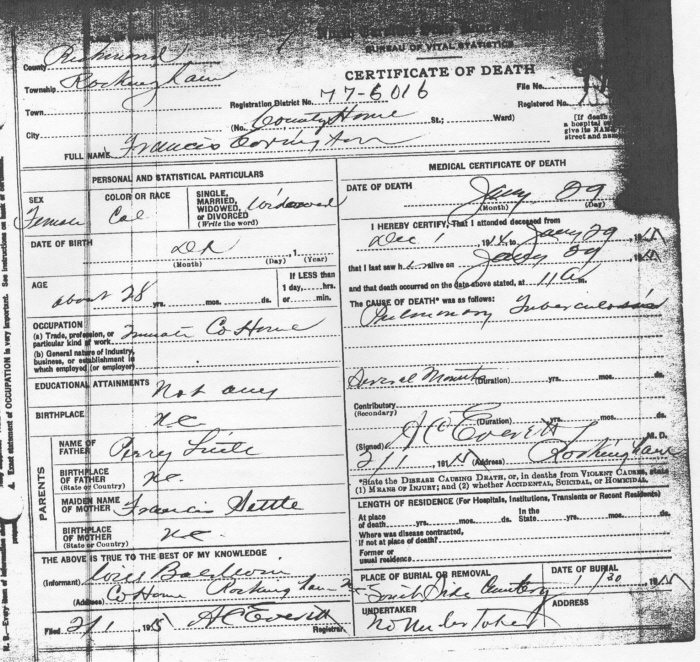 BUREAU OF VITAL STATISTICS
CERTIFICATE OF DEATH
County Richmond
Township Rockingham
Registration District No. 77-6016
File No.
Town
Registered No.
(No. County Home St.; Ward)
[If death
a hospital or
give its NAME
street and
City
FULL NAME Francis Covington
PERSONAL AND STATISTICAL PARTICULARS
SEX
Female
COLOR OR RACE
Col
SINGLE,
MARRIED,
WIDOWED,
or DIVORCED
(Write the word)
Widowed
DATE OF BIRTH
DK , 1
(Month) (Day) (Year)
AGE
about 28 yrs. mos. ds.
If LESS than
1 day, hrs.
or min.
OCCUPATION
(a) Trade, profession, or
particular kind of work Inmate Co Home
(b) General nature of industry,
business, or establishment in
which employed (or employer)
EDUCATIONAL ATTAINMENTS Not any
BIRTHPLACE
NC
PARENTS
NAME OF
FATHER Perry
BIRTHPLACE
OF FATHER
(State or Country) NC
MAIDEN NAME
OF MOTHER Francis Settle
BIRTHPLACE
OF MOTHER
(State or Country) NC
THE ABOVE IS TRUE TO THE BEST OF MY KNOWLEDGE
(Informant) Will Baldwin
(Address) Co Home Rockingham NC
Filed 2/1 1915 A C Everett
Registrar
MEDICAL CERTIFICATE OF DEATH
DATE OF DEATH
Jany 29
(Month) (Day)
I HEREBY CERTIFY, That I attended deceased from
Dec 1 1914, to Jany 29, 1915
that I last saw h alive on Jany 29, 1915
and that death occurred on the date above stated, at 11 A m.
The CAUSE OF DEATH* was as follows:
Pulmonary Tuberculosis
Several Months (Duration) yrs. mos. ds.
Contributory
(Secondary)
(Duration) yrs. mos. ds.
(Signed) A C Everett M. D.
2/1, 1915 (Address) Rockingham
*State the DISEASE CAUSING DEATH, or, in deaths from VIOLENT CAUSES, state
(1) MEANS OF INJURY; and (2) whether ACCIDENTAL, SUICIDAL, or HOMICIDAL.
LENGTH OF RESIDENCE (For Hospitals, Institutions, Transients or Recent Residents)
At place
of death yrs. mos. ds.
In the
State yrs. mos. ds.
Where was disease contracted,
if not at place of death?
Former or
usual residence
PLACE OF BURIAL OR REMOVAL
South Side Cemetery
DATE OF BURIAL
1/30, 1915
UNDERTAKER
No Undertaker
ADDRESS
A. Exact statement of OCCUPATION is very important. See instructions on back of
N. B.—Every item of information